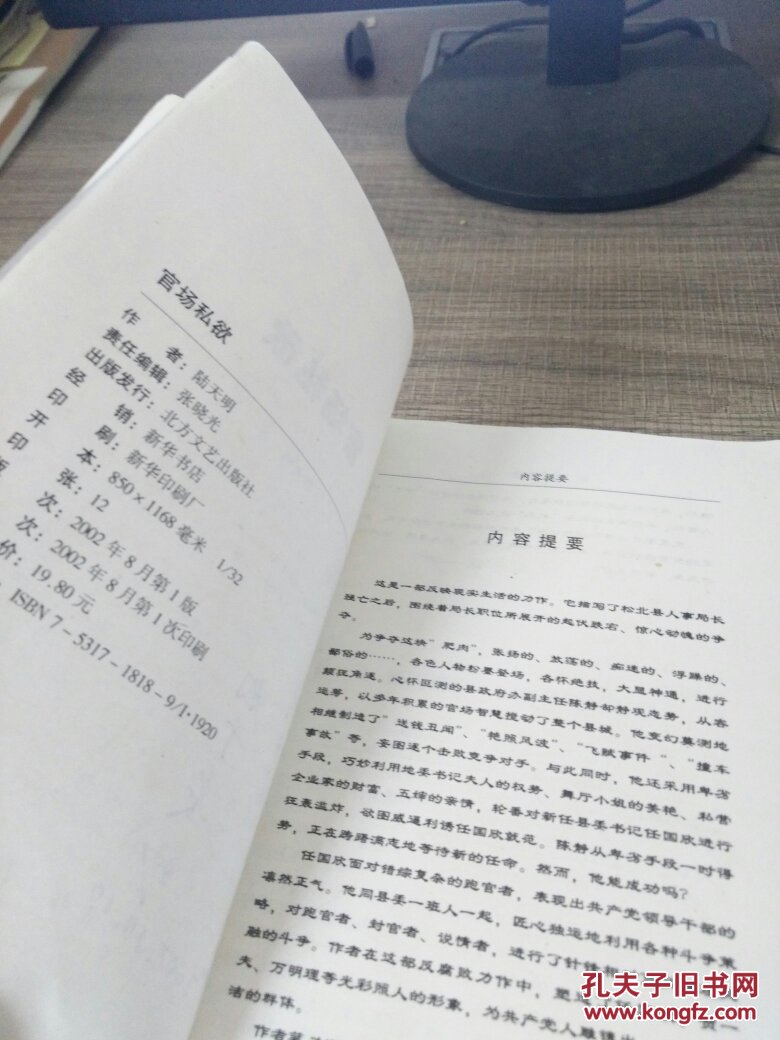 官场私欲
作 者：陆天明
责任编辑：张晓光
出版发行：北方文艺出版社
经 销：新华书店
印 刷：新华印刷厂
开 本：850×1168毫米 1/32
印 张：12
版 次：2002年8月第1版
次：2002年8月第1次印刷
价：19.80元
ISBN 7-5317-1818-9/I·1920
内容提要
内容提要
这是一部反映现实生活的力作。它描写了松北县人事局长
殒亡之后，围绕着局长职位所展开的起伏跌宕、惊心动魄的争
夺。
为争夺这块“肥肉”，张扬的、放荡的、痴迷的、浮躁的、
鄙俗的……，各色人物粉墨登场，各怀绝技，大显神通，进行
颠狂角逐。心怀叵测的县政府办副主任陈静却静观态势，从容
运筹，以多年积累的官场智慧搅动了整个县城。他变幻莫测地
相继制造了“送钱丑闻”、“艳照风波”、“飞赋事件“、“撞车
事故”等，妄图逐个击败竞争对手。与此同时，他还采用卑劣
手段，巧妙利用地委书记夫人的权势、舞厅小姐的美艳、私营
企业家的财富、五婶的亲情，轮番对新任县委书记任国欣进行
狂轰滥炸，欲图威逼利诱任国欣就范。陈静从卑劣手段一时得
势，正在踌躇满志地等待新的任命。然而，他能成功吗？
任国欣面对错综复杂的跑官者，表现出共产党领导干部的
凛然正气。他同县委一班人一起，匠心独运地利用各种斗争策
略，对跑官者、封官者、说情者，进行了针锋相
融的斗争。作者在这部反腐败力作中，塑造了
夫、万明理等光彩照人的形象，为共产党人雕铸出
洁的群体。
孔夫子旧书网
www.kongfz.com